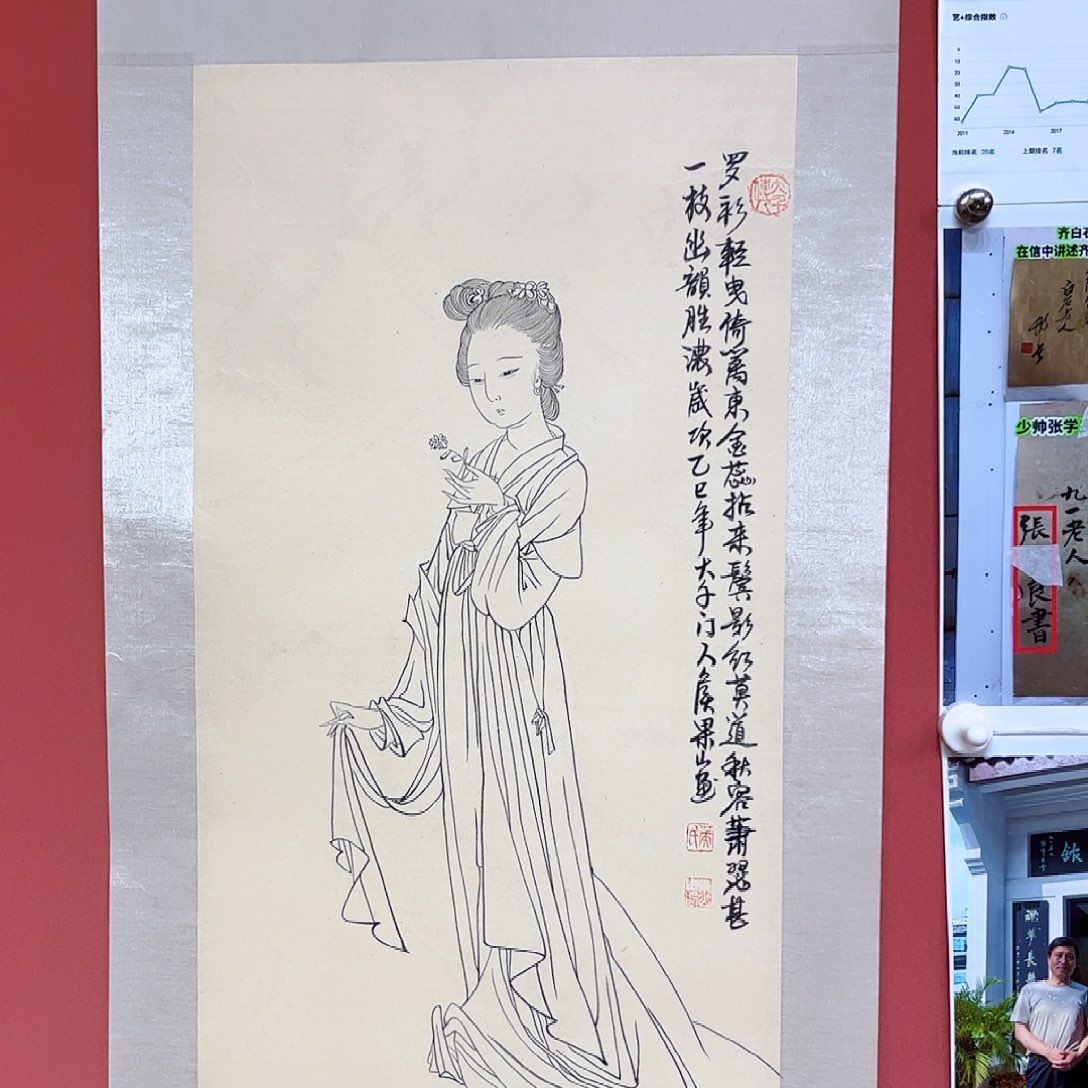 罗衫輕曳倚蓠東金蕊拈来鬓影
莫道秋容萧瑟甚
一枝幽韻胜濃
歲次乙巳年大千门人侯果山画
艺+综合指数
0
10
20
30
40
50
60
2011
2014
2017
当前排名 20名
上期排名 7名
齐白石
在信中讲述齐
白石老人
少帅张学
九一老人
張
良書
館